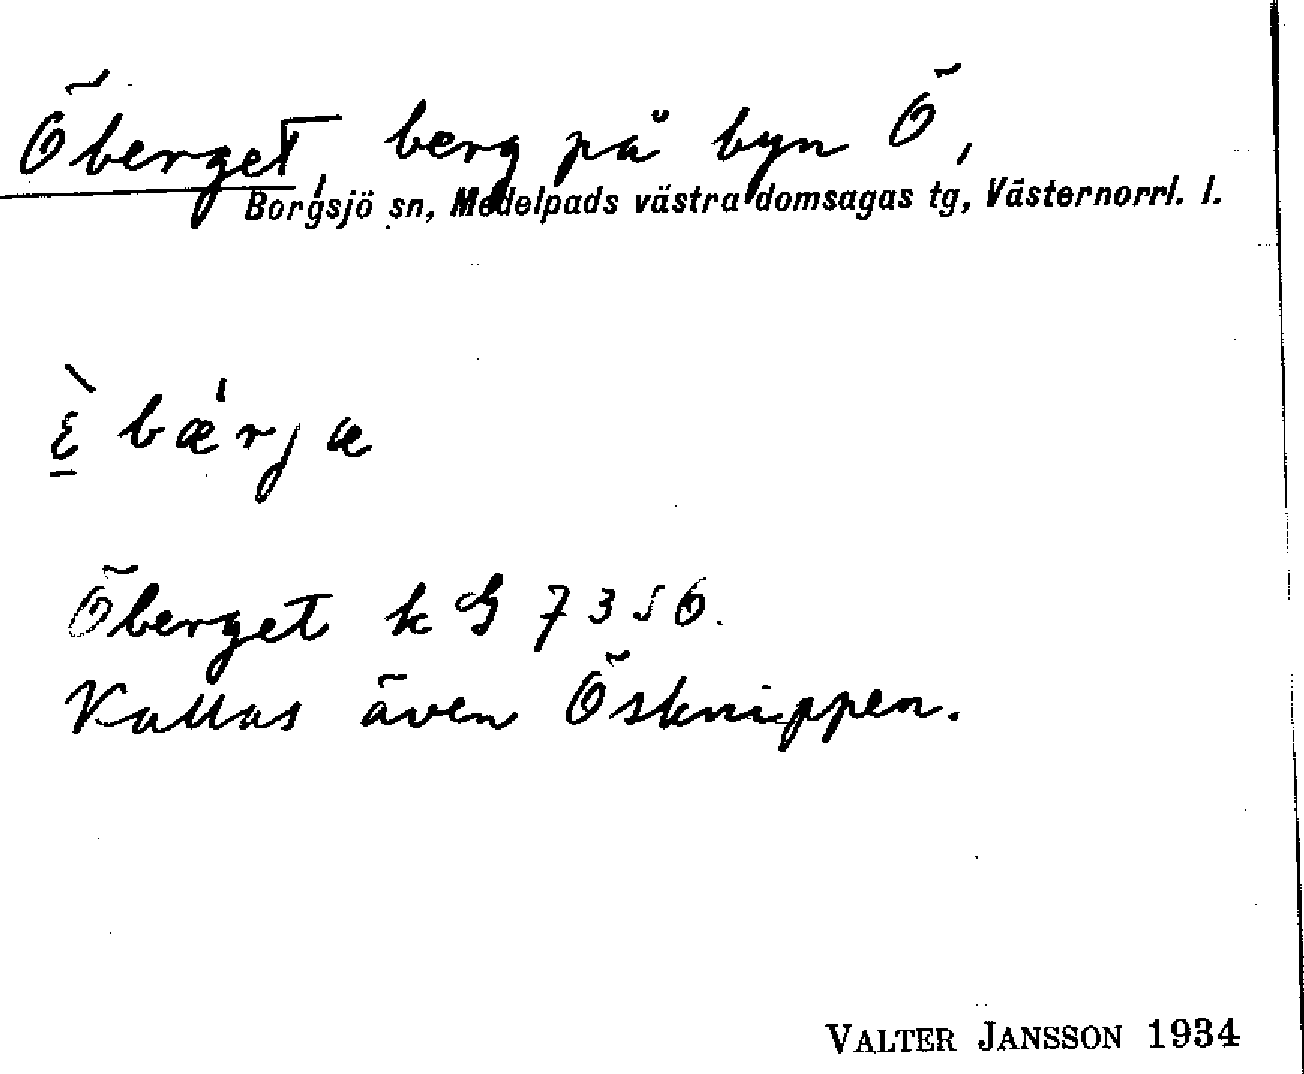 Öberget, berg på byn Ö,
Borgsjö sn, Medelpads västra domsagas tg, Västernorrl. l.
ɛ̱̀ bæ̍rjæ
Öberget k G 7356.
Kallas även Ösknippen.
VALTER JANSSON 1934